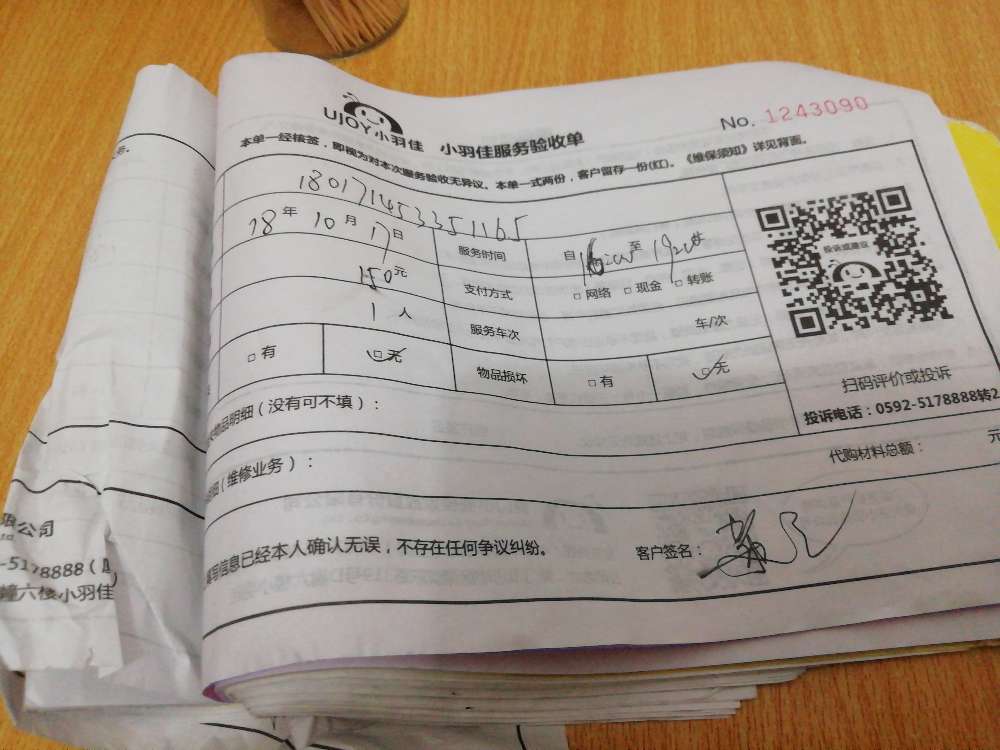 UJOY小羽佳 小羽佳服务验收单
No. 1243090
本单一经核签,即视为对本次服务验收无异议。本单一式两份,客户留存一份(红)。《维保须知》详见背面。
18017145335 1165
18年10月17日 服务时间 自 至
150元 支付方式 □网络 □现金 □转账
1人 服务车次 车/次
□有 □无 物品损坏 □有 □无
投诉或建议
扫码评价或投诉
投诉电话:0592-5178888转2
物品明细(没有可不填):
(维修业务): 代购材料总额: 元
写信息已经本人确认无误,不存在任何争议纠纷。 客户签名:
限公司
-5178888(
幢六楼小羽佳